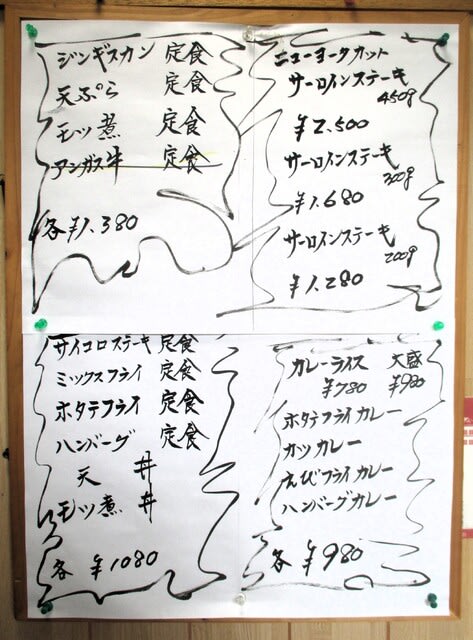 ジンギスカン 定食
天ぷら 定食
モツ煮 定食
アンガス牛 定食
各¥1.380
ニューヨークカット
サーロインステーキ
450g
¥2,500
サーロインステーキ
300g
¥1.680
サーロインステーキ
200g
¥1.280
サイコロステーキ 定食
ミックスフライ 定食
ホタテフライ 定食
ハンバーグ 定食
天 丼
モツ煮 丼
各 ¥1080
カレーライス 大盛
¥780 ¥980
ホタテフライカレー
カツカレー
えびフライカレー
ハンバーグカレー
各 ¥980